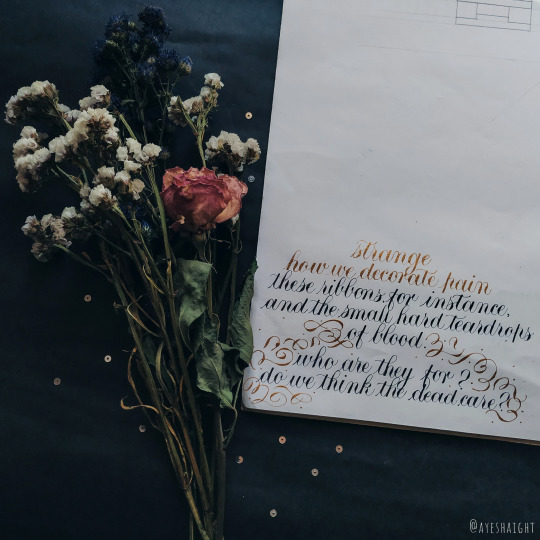 strange
how we decorate pain
these ribbons, for instance,
and the small hard teardrops
of blood
who are they for?
do we think the dead care?
@AYESHAIGHT